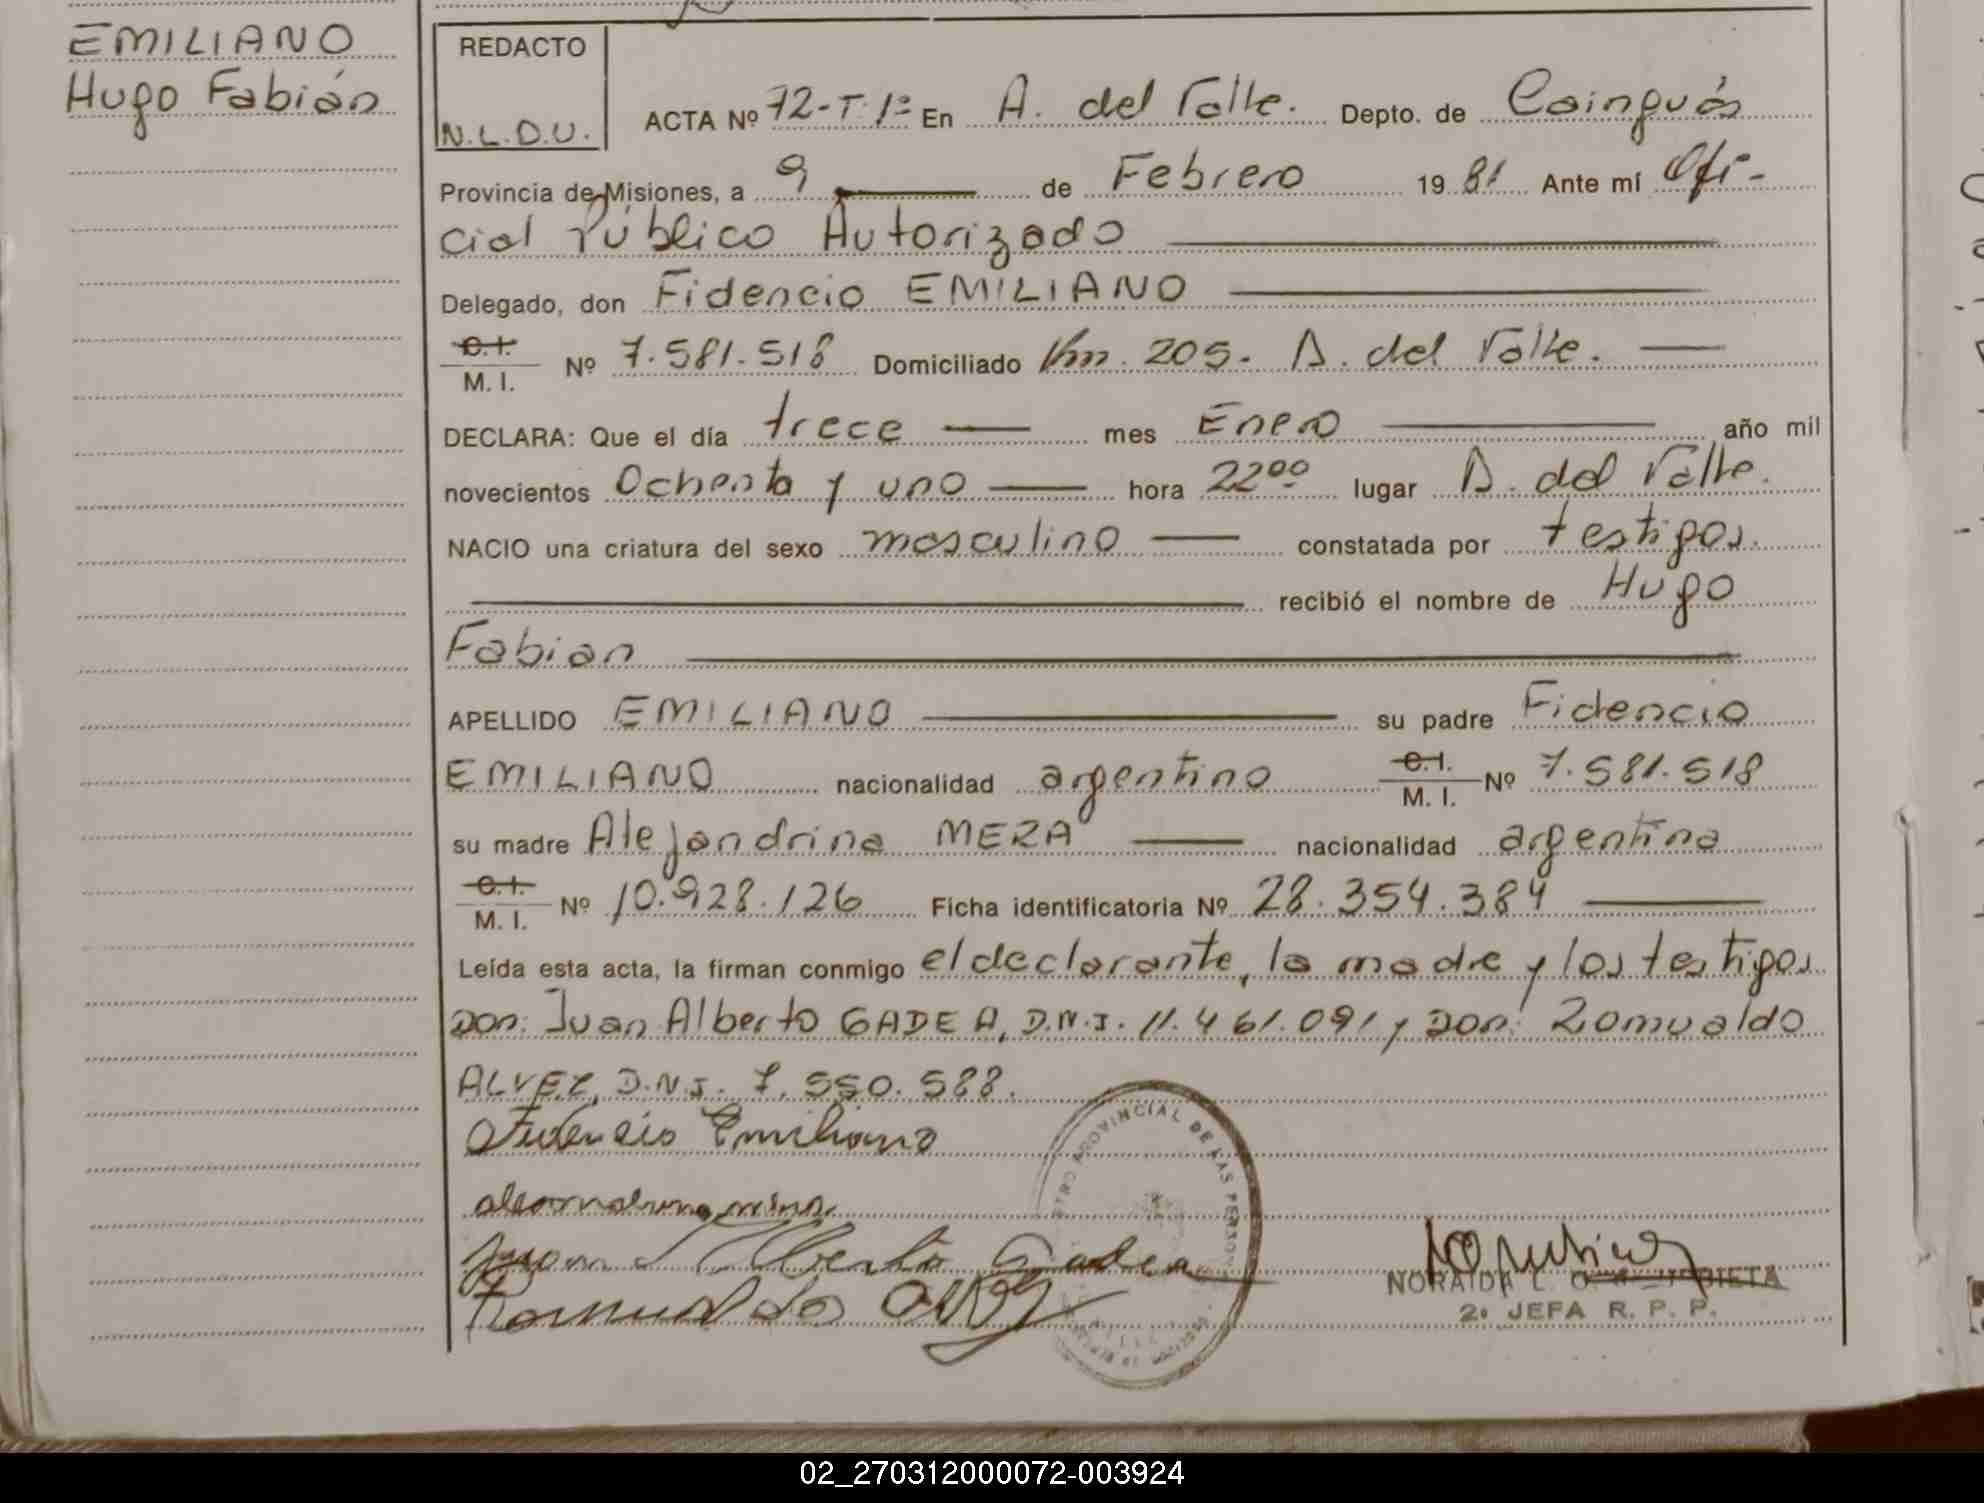 EMILIANO
Hugo Fabián
REDACTO
N.L.D.U.
ACTA Nº 72-T.1º En A. del Valle. Depto. de Cainguás
Provincia de Misiones, a 9 de Febrero 1981 Ante mí Ofi-
cial Público Autorizado
Delegado, don Fidencio EMILIANO
C.I.
M. I. Nº 7.581.518 Domiciliado Km. 205. A. del Valle.
DECLARA: Que el día trece mes Enero año mil
novecientos Ochenta y uno hora 22⁰⁰ lugar A. del Valle.
NACIO una criatura del sexo masculino constatada por testigos.
recibió el nombre de Hugo
Fabian
APELLIDO EMILIANO su padre Fidencio
EMILIANO nacionalidad argentino C.I. M. I. Nº 7.581.518
su madre Alejandrina MEZA nacionalidad argentina
C.I.
M. I. Nº 10.928.126 Ficha identificatoria Nº 28.354.384
Leída esta acta, la firman conmigo el declarante, la madre y los testigos
Don: Juan Alberto GADEA, D.N.I. 11.461.091 y Don: Romualdo
ALVEZ, D.N.I. 7.550.588.
Fidencio Emiliano
Juan Alberto Gadea
Romualdo Alvez
PROVINCIAL DE LAS PERSON
NORAIDA L. O. URBIETA
2º JEFA R. P. P.
02_270312000072-003924